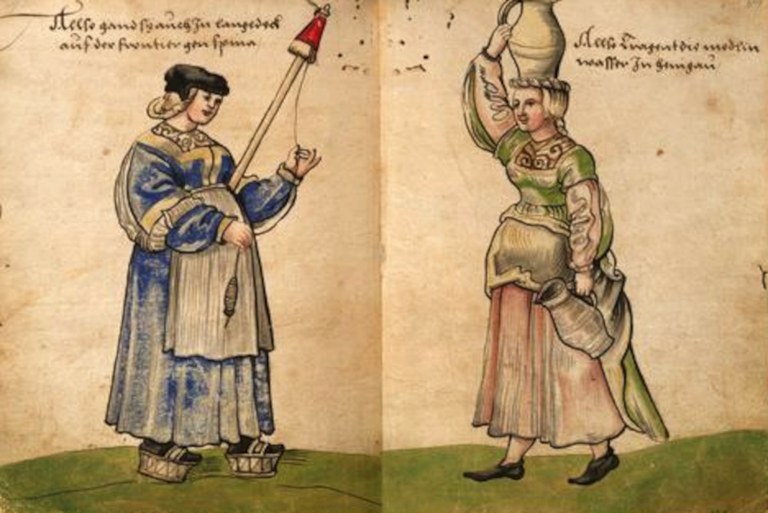 Allso gand sy auch In langedeck
auf der frontier gen spnia
Allso Tragent die medlin
wasser In hengau